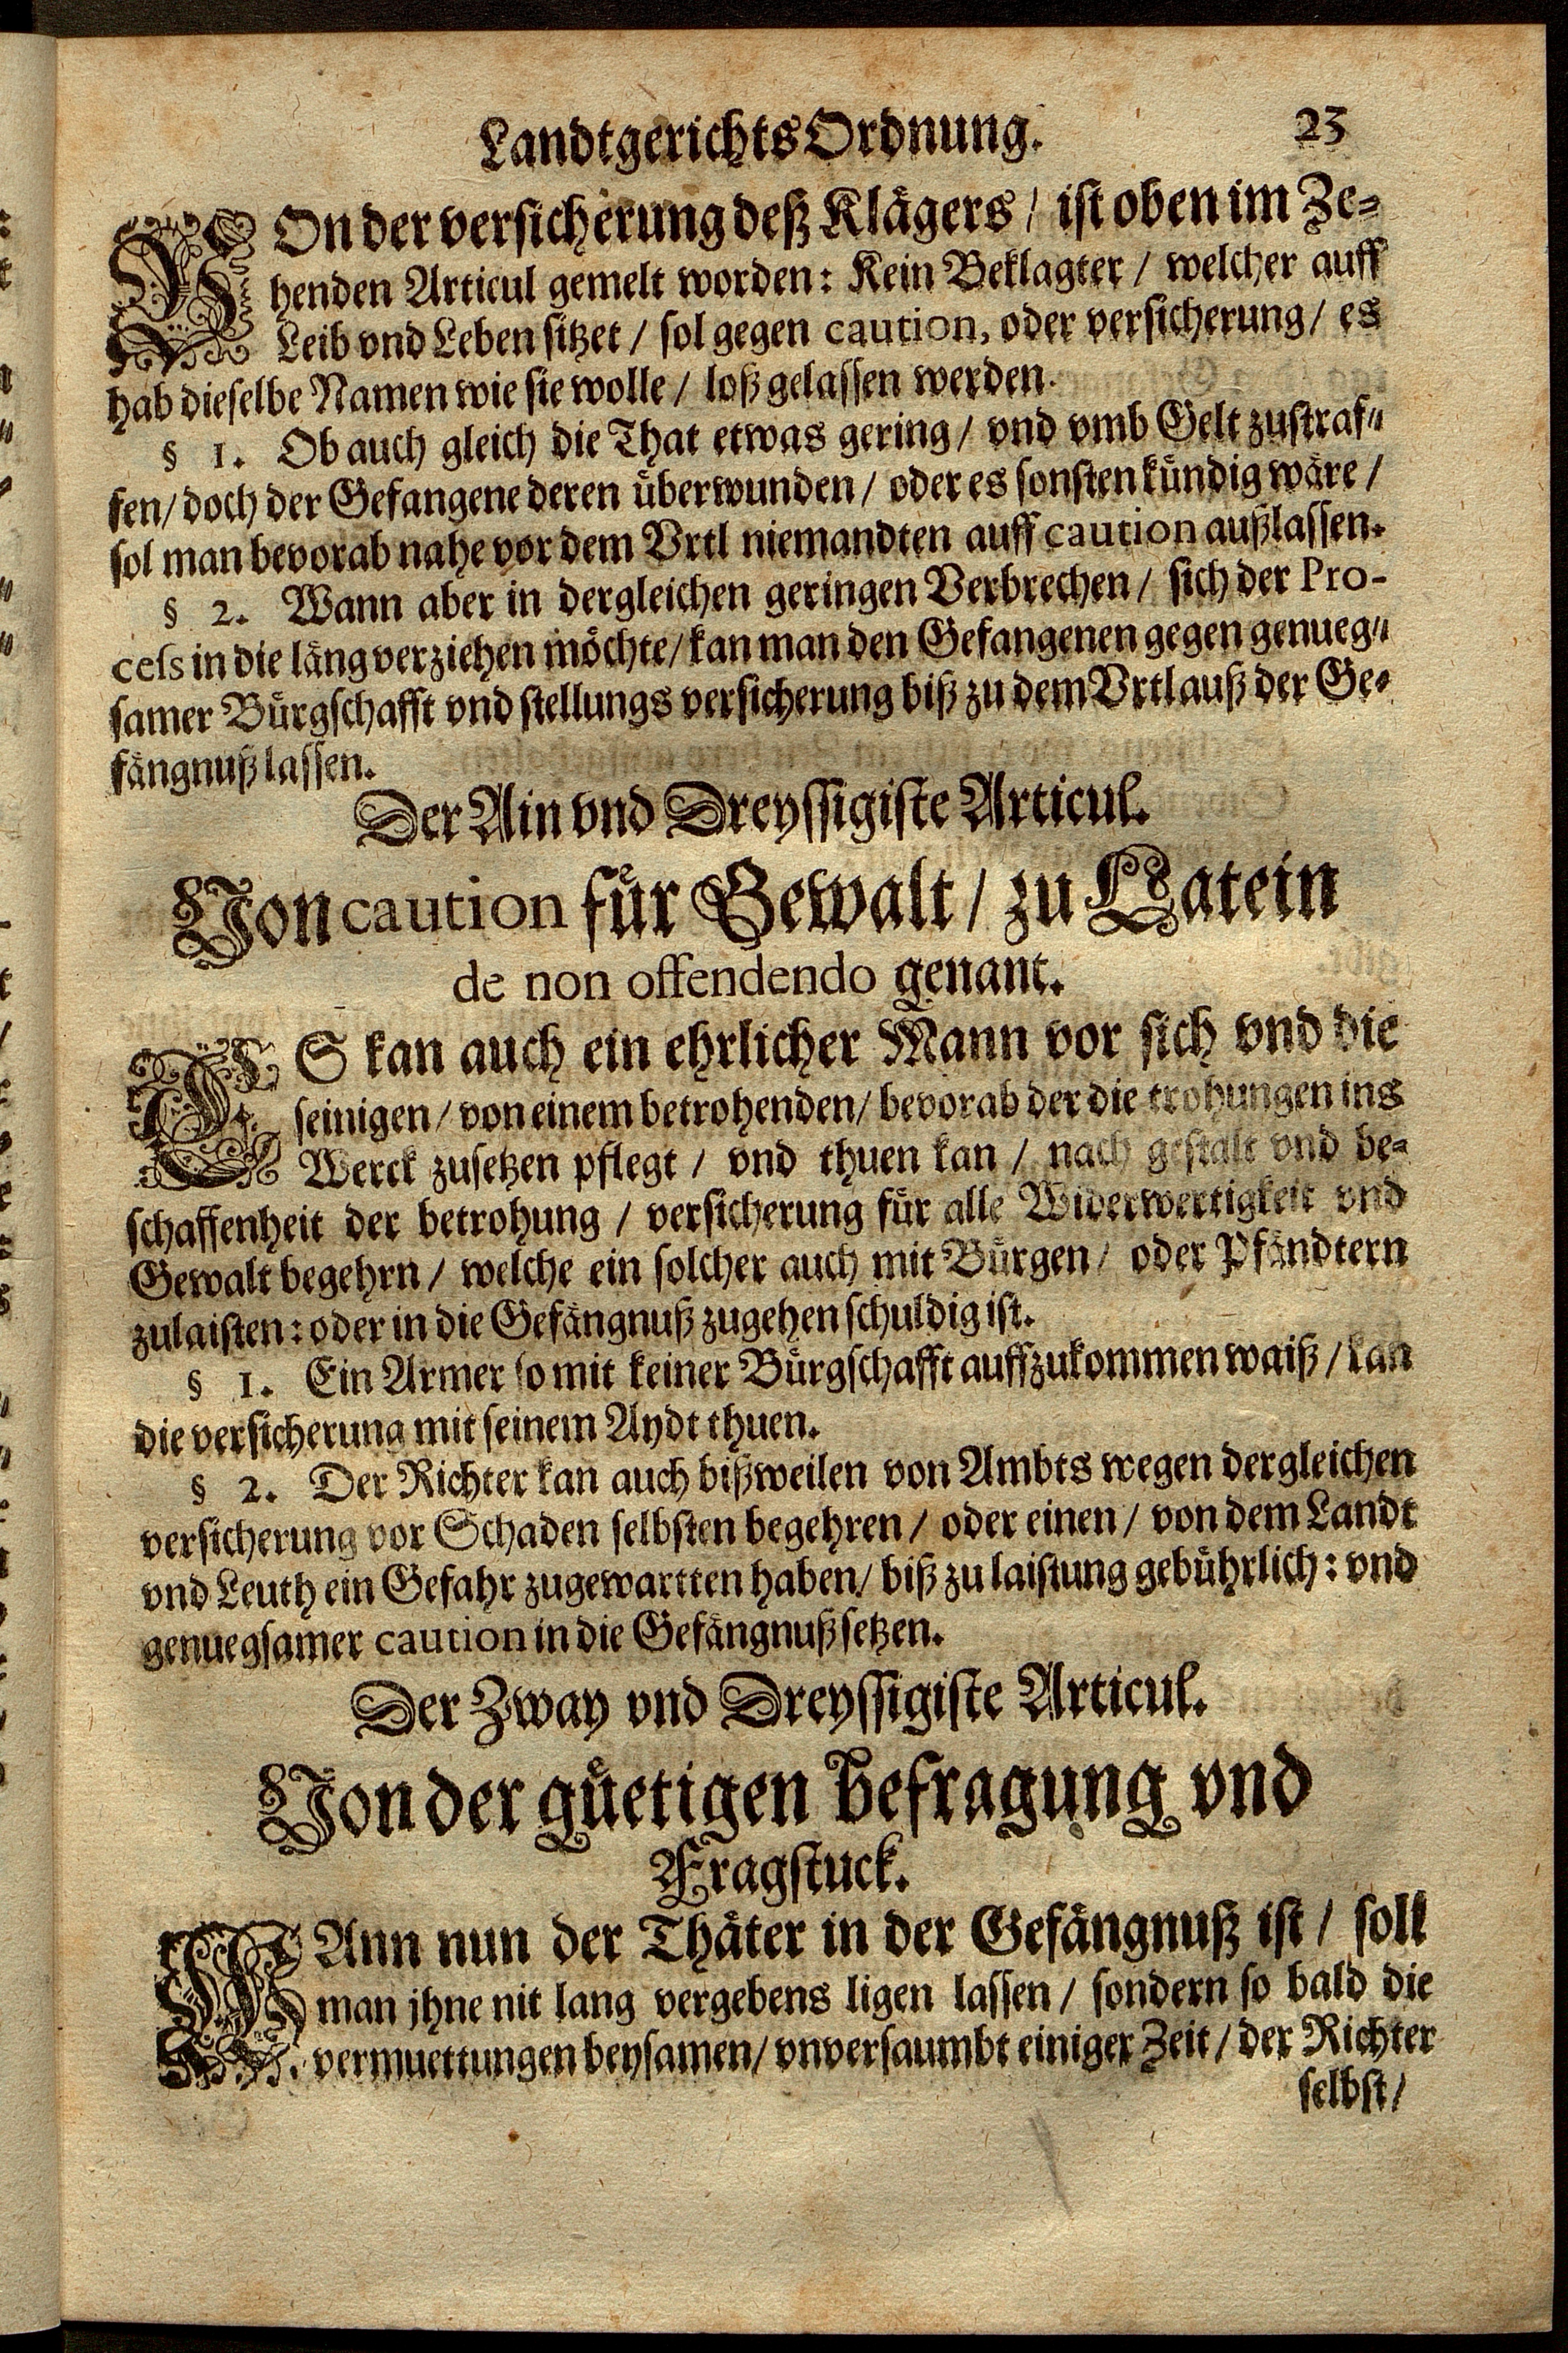 LandtgerichtsOrdnung. 23
VOn der versicherung deß Klägers / ist oben im Ze-
henden Articul gemelt worden: Kein Beklagter / welcher auff
Leib vnd Leben sitzet / sol gegen caution, oder versicherung / es
hab dieselbe Namen wie sie wolle / loß gelassen werden.
§ 1. Ob auch gleich die That etwas gering / vnd vmb Gelt zustraf-
fen / doch der Gefangene deren überwunden / oder es sonsten kündig wäre /
sol man bevorab nahe vor dem Vrtl niemandten auff caution außlassen.
§ 2. Wann aber in dergleichen geringen Verbrechen / sich der Pro-
cess in die läng verziehen möchte / kan man den Gefangenen gegen genueg-
samer Bürgschafft vnd stellungs versicherung biß zu dem Vrtl auß der Ge-
fängnuß lassen.
Der Ain vnd Dreyssigiste Articul.
Von caution für Gewalt / zu Latein
de non offendendo genant.
ES kan auch ein ehrlicher Mann vor sich vnd die
seinigen / von einem betrohenden / bevorab der die trohungen ins
Werck zusetzen pflegt / vnd thuen kan / nach gestalt vnd be-
schaffenheit der betrohung / versicherung für alle Widerwertigkeit vnd
Gewalt begehrn / welche ein solcher auch mit Bürgen / oder Pfändtern
zulaisten: oder in die Gefängnuß zugehen schuldig ist.
§ 1. Ein Armer so mit keiner Bürgschafft auffzukommen waiß / kan
die versicherung mit seinem Aydt thuen.
§ 2. Der Richter kan auch bißweilen von Ambts wegen dergleichen
versicherung vor Schaden selbsten begehren / oder einen / von dem Landt
vnd Leuth ein Gefahr zugewartten haben / biß zu laistung gebührlich: vnd
genuegsamer caution in die Gefängnuß setzen.
Der Zway vnd Dreyssigiste Articul.
Von der güetigen befragung vnd
Fragstuck.
WAnn nun der Thäter in der Gefängnuß ist / soll
man jhne nit lang vergebens ligen lassen / sondern so bald die
vermuettungen beysamen / vnversaumbt einiger Zeit / der Richter
selbst /